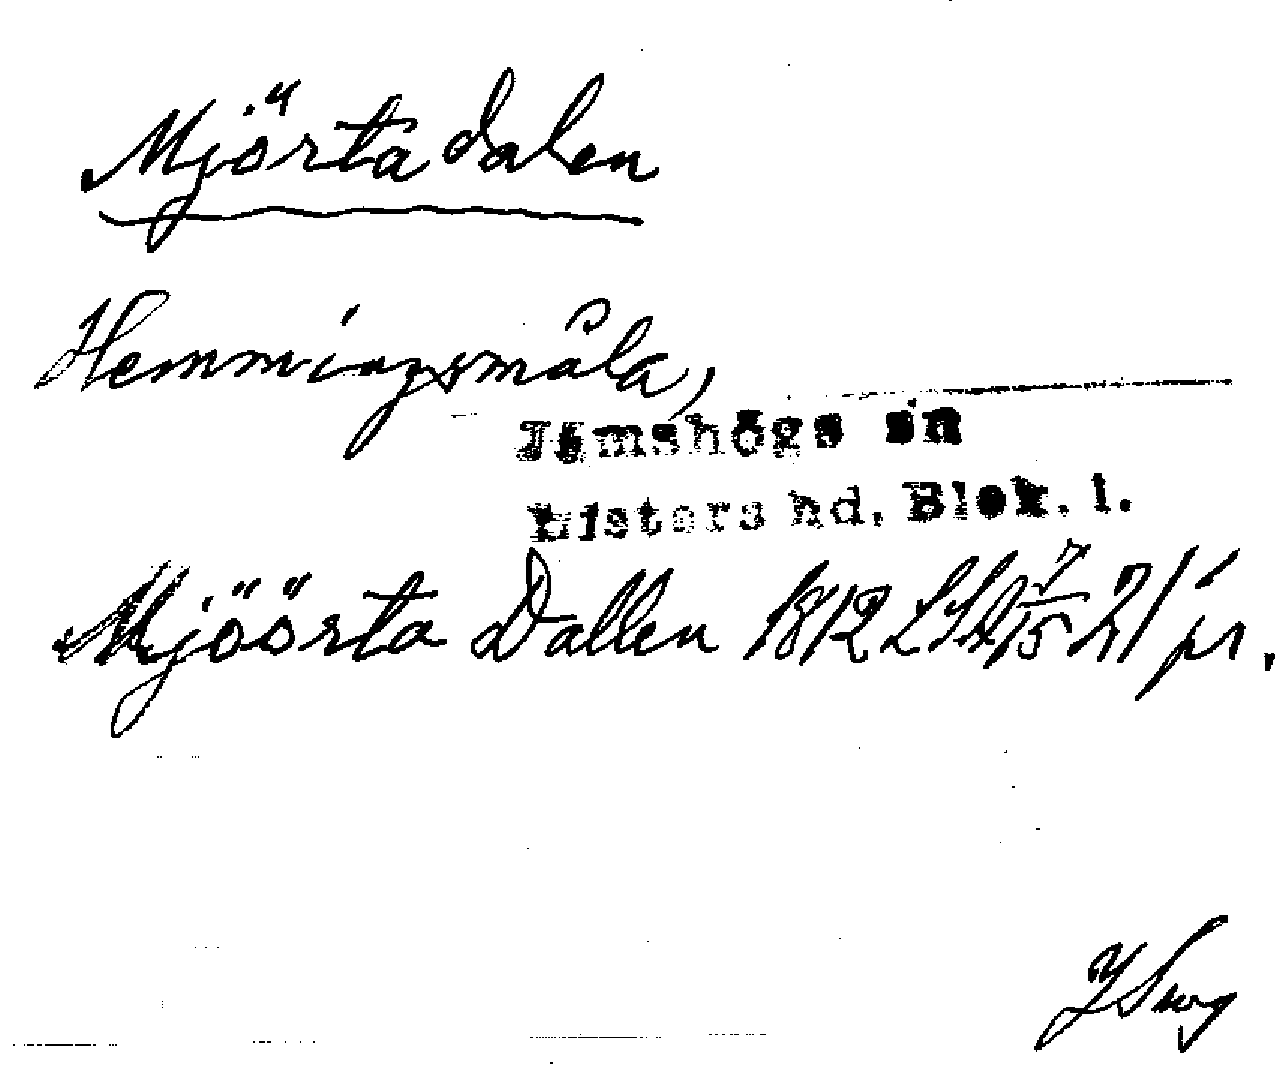 Mjörta dalen
Hemmingsmåla,
Jämshögs sn
Listers hd. Blek. l.
Mjöörta Dallen 1812